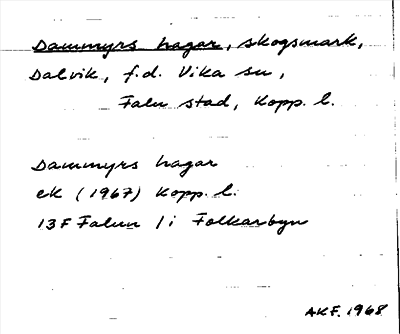 Dammyrs hagar, skogsmark,
Dalvik, f.d. Vika sn,
Falu stad, Kopp. l.
Dammyrs hagar
ek (1967) Kopp. l.
13F Falun 1 i Folkarbyn
AKF. 1968